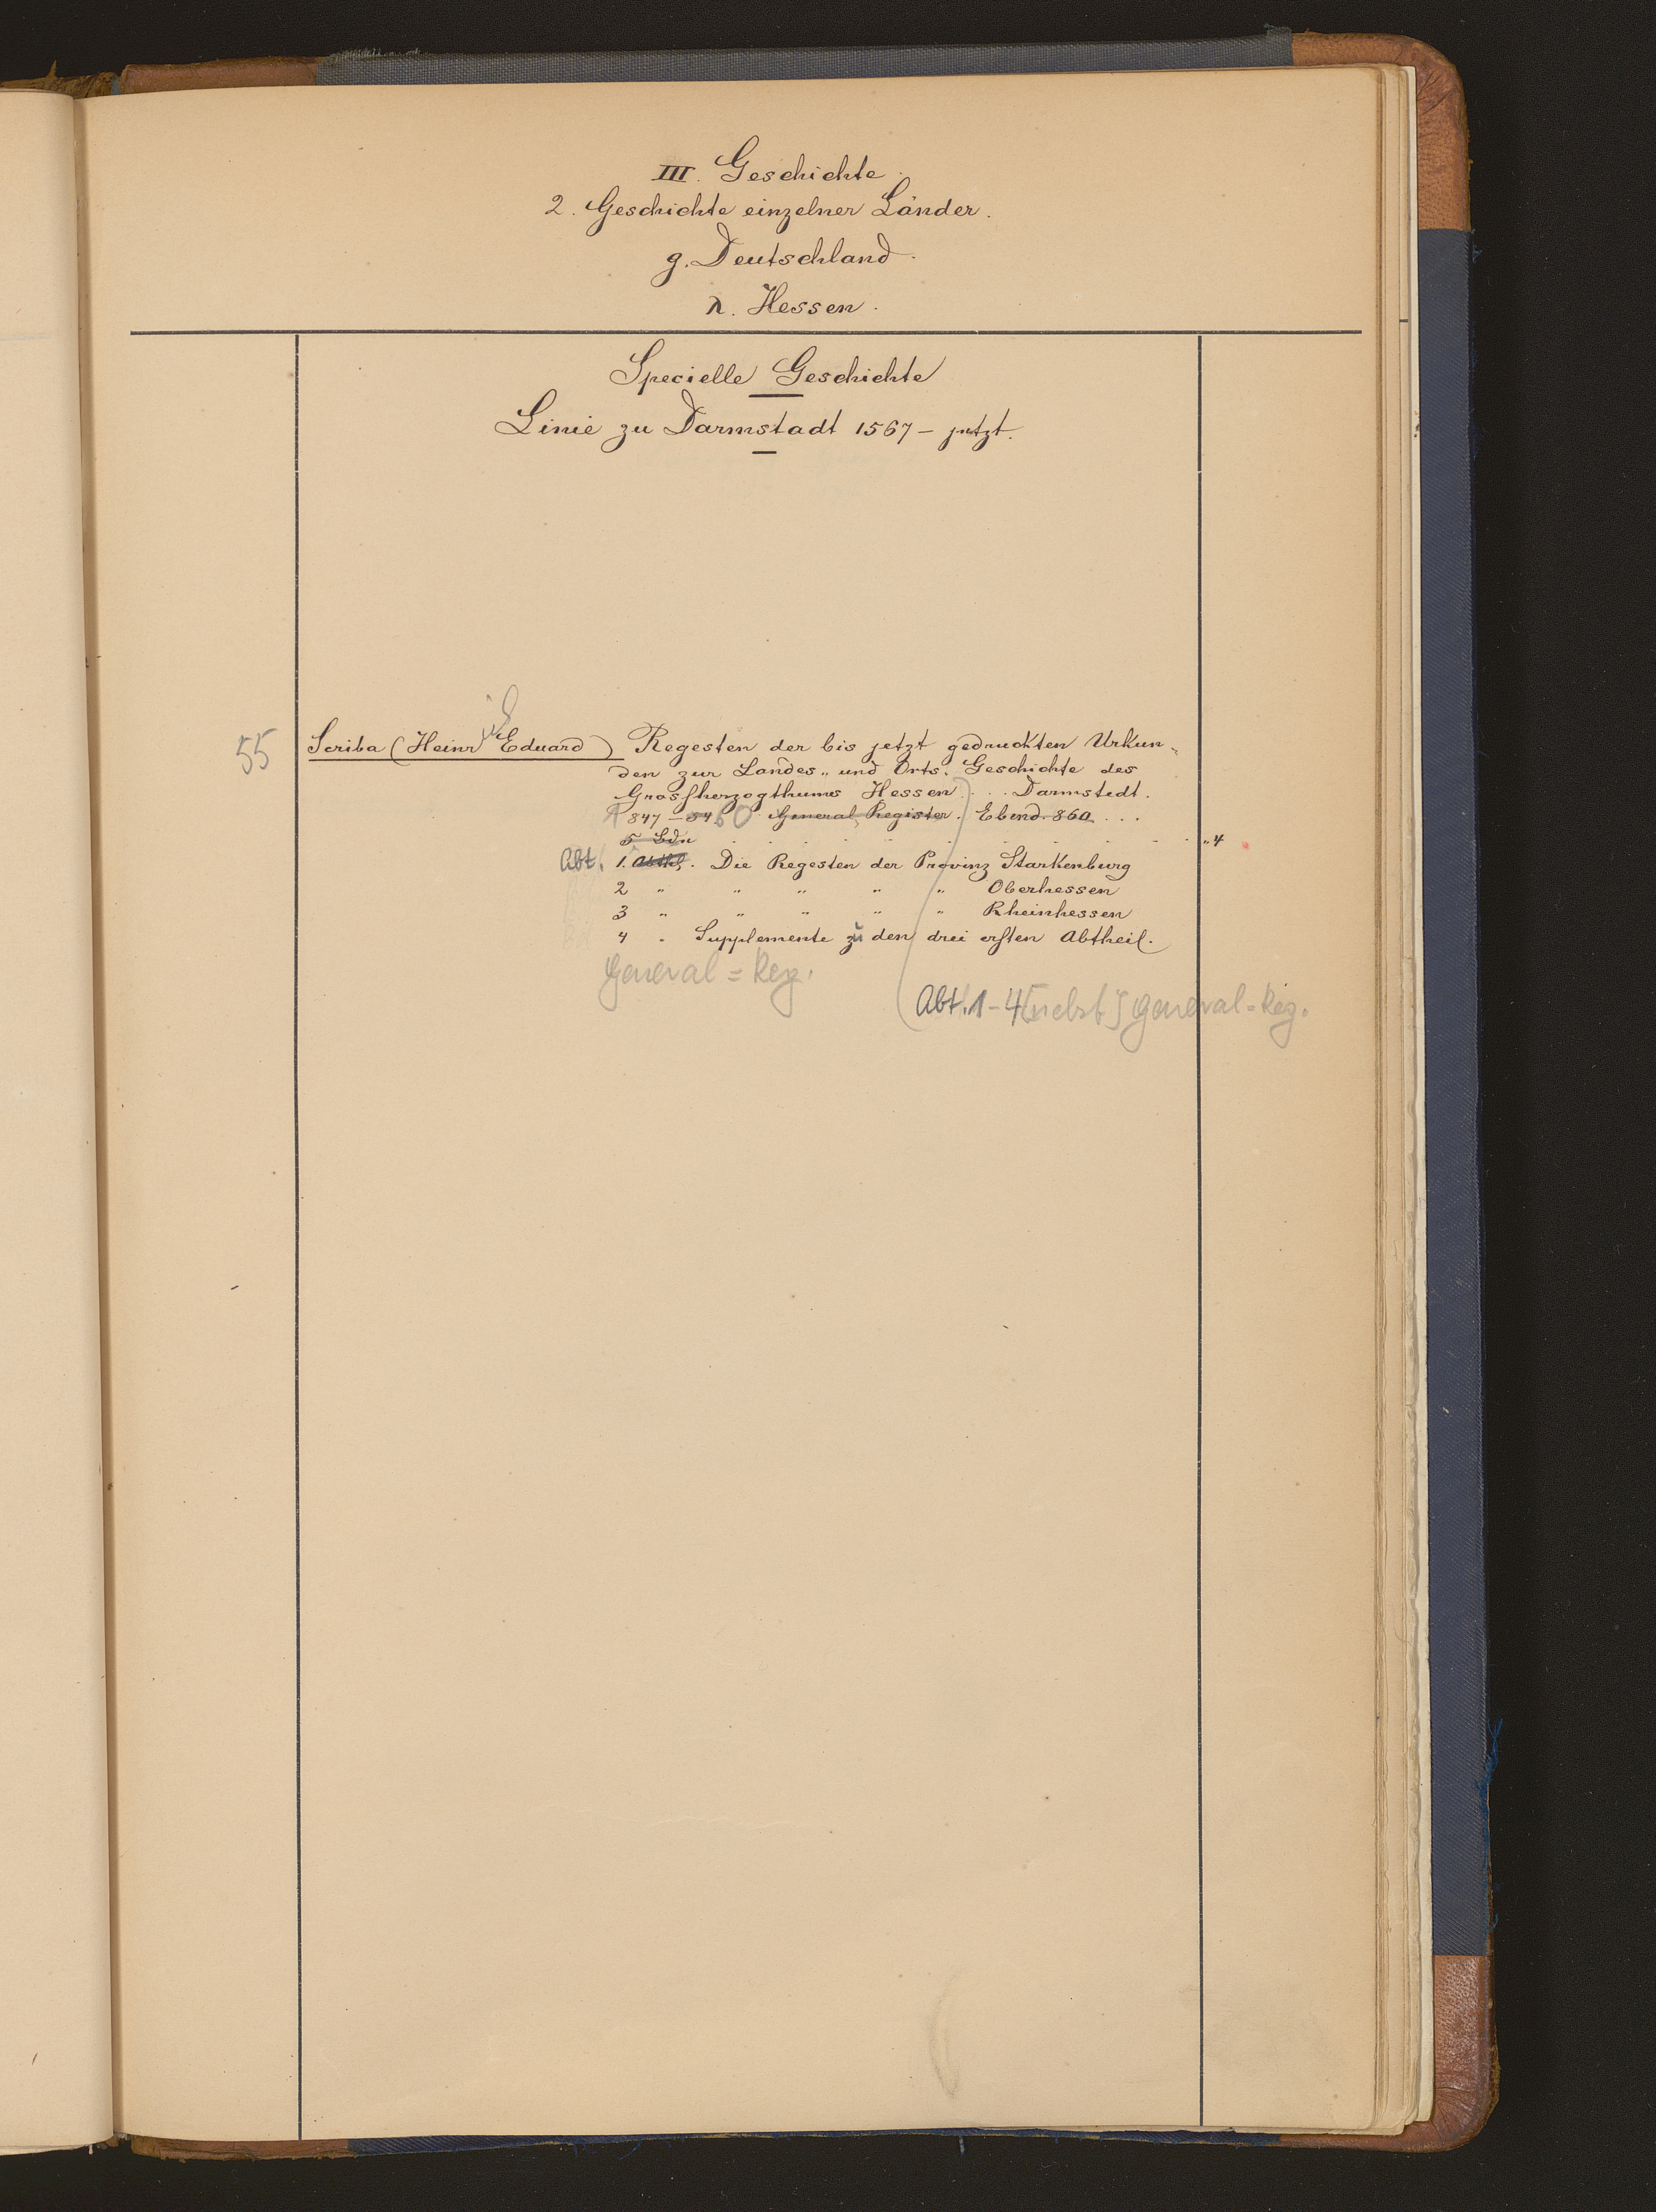 III. Geschichte.
2. Geschichte einzelner Länder.
g. Deutschland.
λ. Hessen.
Specielle Geschichte
Linie zu Darmstadt 1567 – jetzt.
55 Scriba (Heinrich Eduard) Regesten der bis jetzt gedruckten Urkun-
den zur Landes- und Orts-Geschichte des
Grossherzogthums Hessen . . . Darmstadt.
1847 – 54 60 General Register. Ebend. 860 . . .
5 Bdn . . . . . . . . . . „ 4
Abt. 1. Abthl. Die Regesten der Provinz Starkenburg
2 " " " " " Oberhessen
3 " " " " " Rheinhessen
4 " Supplemente zu den drei ersten Abtheil.
General = Reg.
Abt. 1 – 4 [nebst] General = Reg.